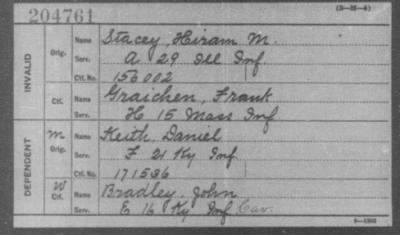 204761 (3-26-4)
INVALID
Orig. Name Stacey, Hiram M.
Serv. A 29 Ill Inf.
Ctf. No. 156002
Ctf. Name Graichen, Frank
Serv. H 15 Mass Inf
DEPENDENT
M Orig. Name Keith, Daniel
Serv. F 21 Ky Inf
Ctf. No. 171536
W Ctf. Name Bradley, John
Serv. E 16 Ky Inf Cav.